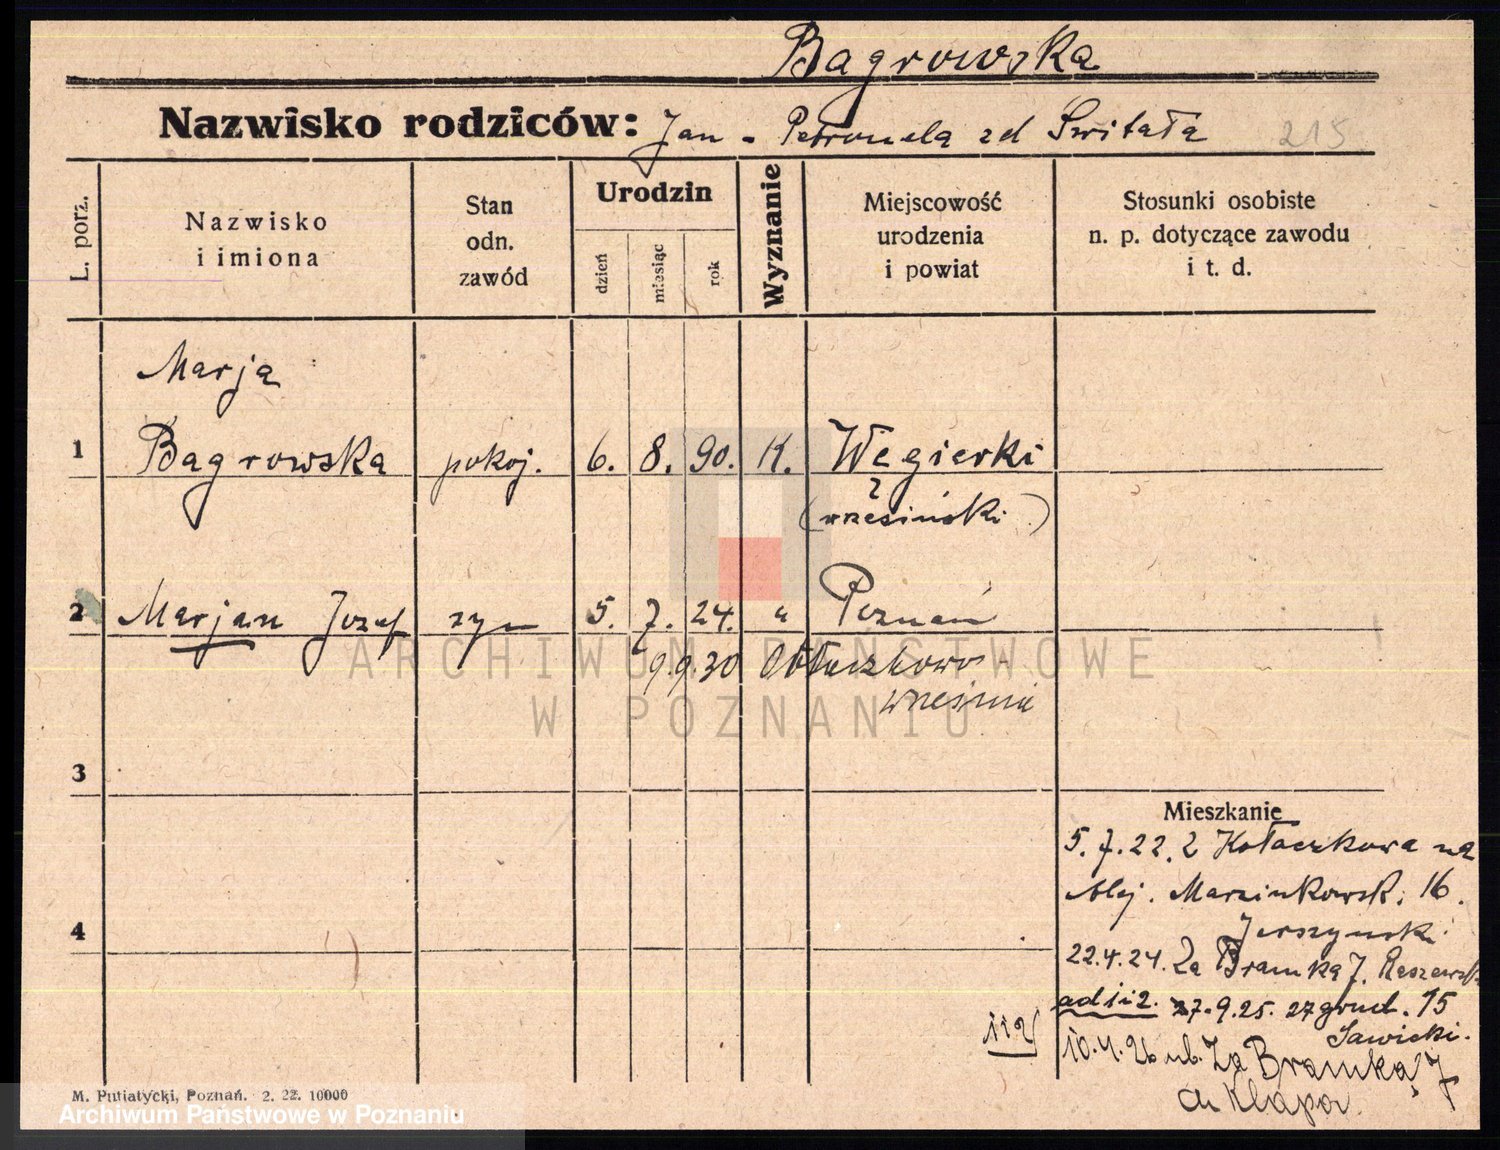 Bagrowska
Nazwisko rodziców: Jan - Petronela zd Switała 215
L. porz.
Nazwisko
i imiona
Stan
odn.
zawód
Urodzin
dzień
miesiąc
rok
Wyznanie
Miejscowość
urodzenia
i powiat
Stosunki osobiste
n. p. dotyczące zawodu
i t. d.
Marja
1 Bagrowska pokoj. 6. 8. 90. K. Węgierki
(wrzesiński)
2 Marjan Jozef syn 5. 7. 24. " Poznań
9.9.30
września
ARCHIWUM PAŃSTWOWE
W POZNANIU
3
Mieszkanie
5.7.22. z Kołaczkowa na
Alej. Marcinkowsk. 16.
4
22.4.24. Za Bramką 7.
ad 1 i 2. 27.9.25. 27 grud. 15
Sawicki.
112
10.4.26 ub. Za Bramką 7
M. Putiatycki, Poznań. 2. 22. 10000
Archiwum Państwowe w Poznaniu